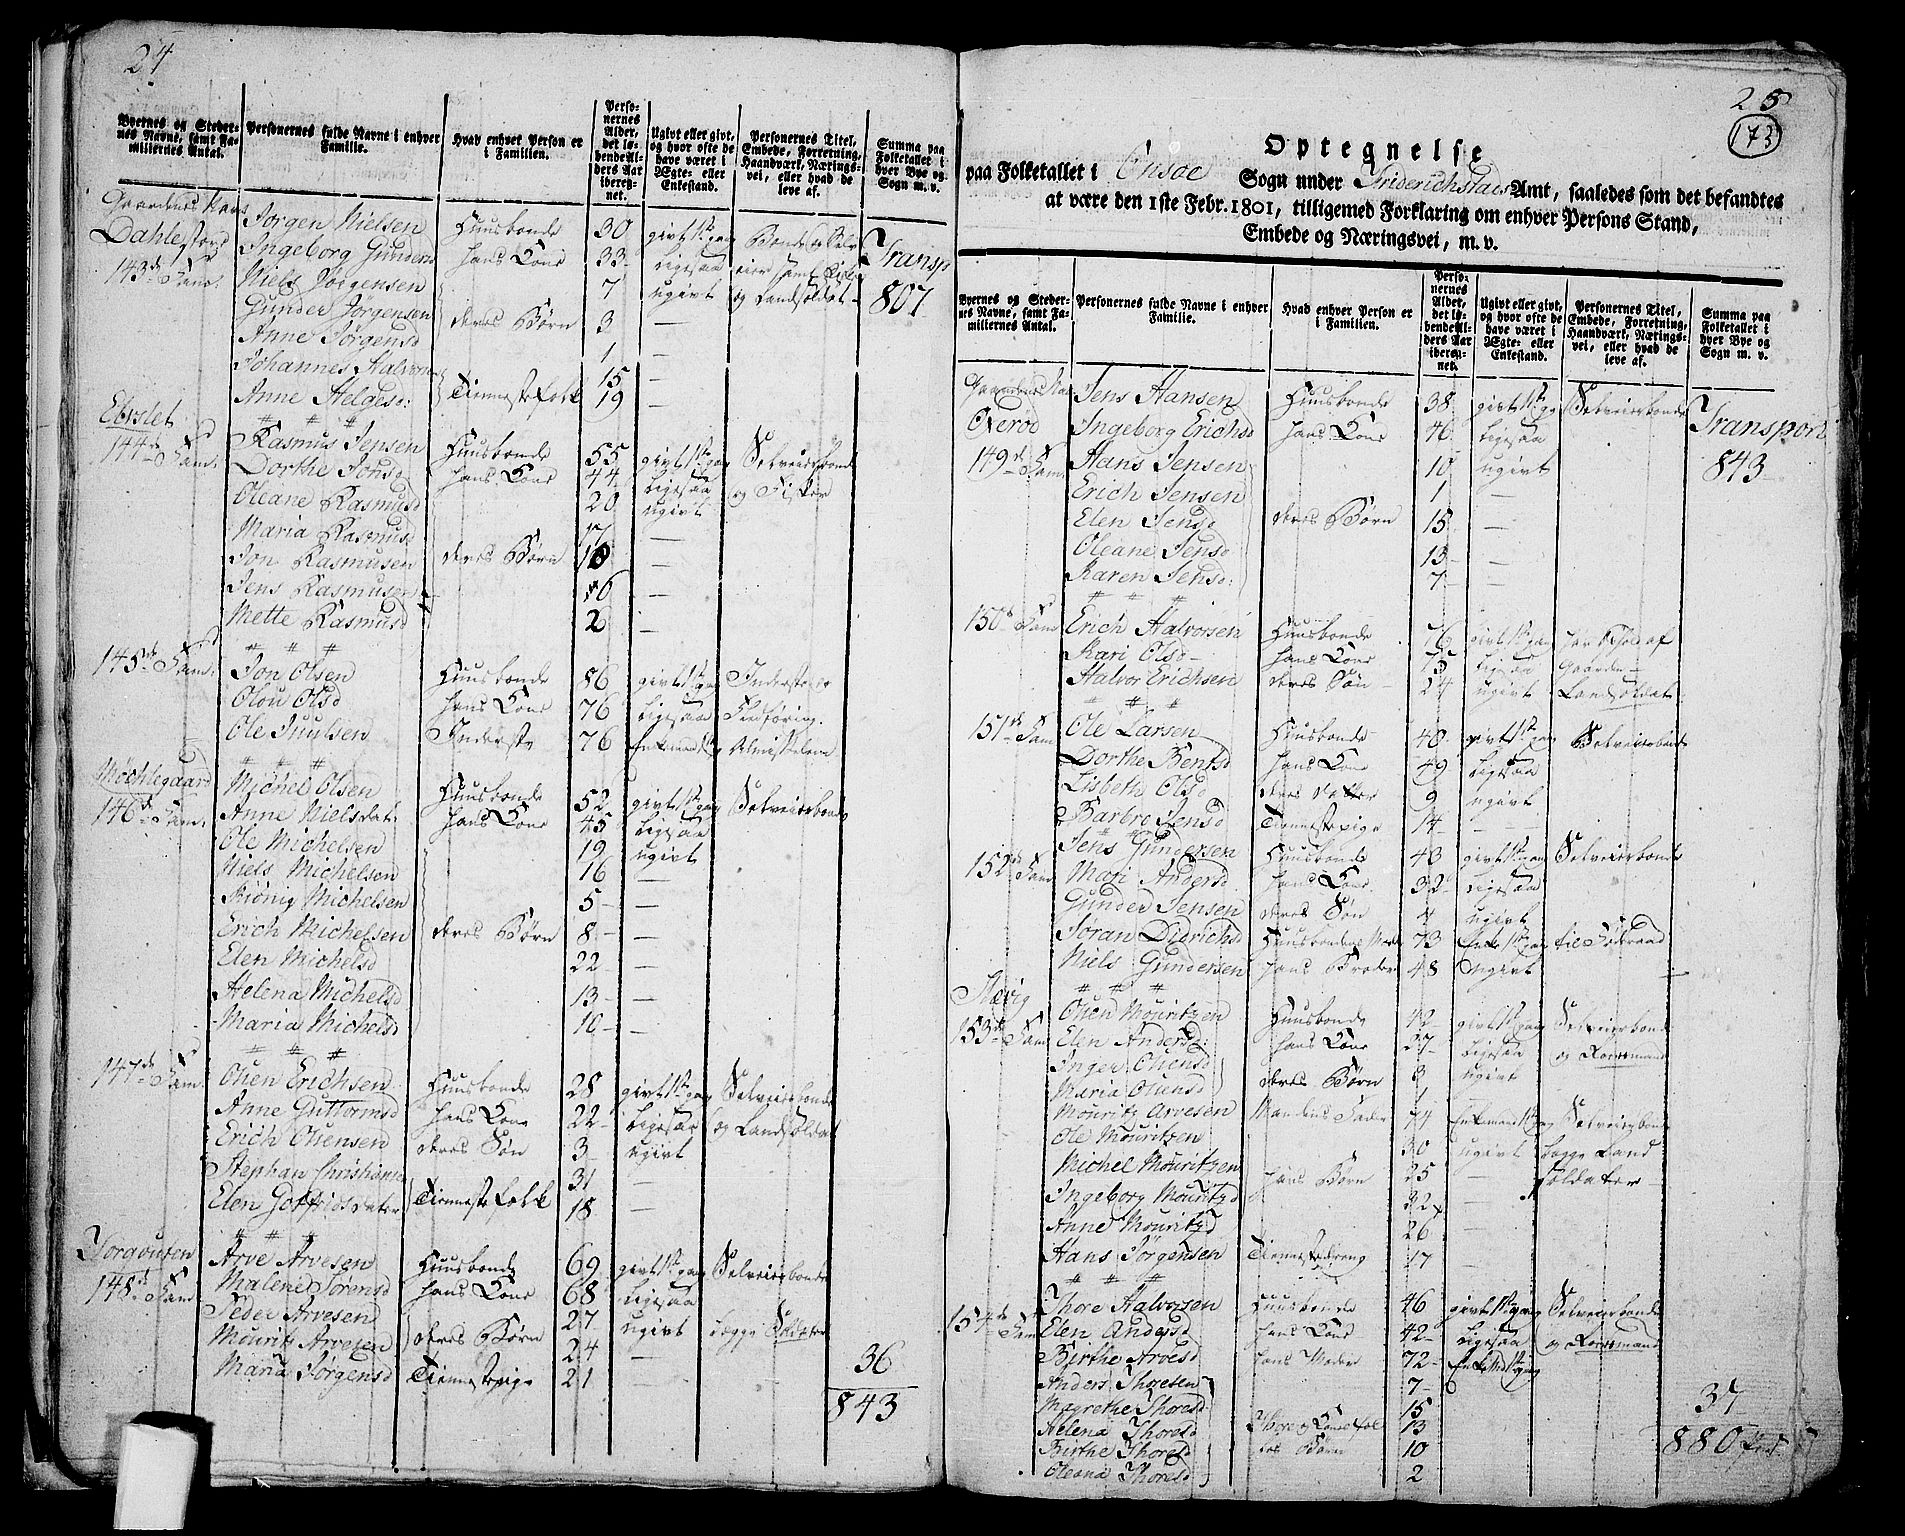 24
Byernes og Stedernes Navne, samt Familiernes Antal.
Personernes fulde Navne i enhver Familie.
Hvad enhver Person er i Familien.
Personernes Alder, det løbende Alders Aar iberegnet.
Ugivt eller givt, og hvor ofte de have været i Ægte- eller Enkestand.
Personernes Titel, Embede, Forretning, Haandværk, Næringsvei, eller hvad de leve af.
Summa paa Folketallet i hver Bye og Sogn m. v.
Gaardenes Navn Jørgen Nielsen Huusbonde 30 givt 1st gang Bonde og
Dahlestorp Ingeborg Gundersd hans Kone 33 ligesaa Transp
143de Fam. Niels Jørgensen 7 ugivt og Landsoldat 807
Gunder Jørgensen deres Børn 3 —
Anne Jørgensd 1 —
Johannes Halvorsen 15 —
Anne Helgesd: Tienestefolk 19 —
Elvslet
144de Fam. Rasmus Jensen Huusbonde 55 givt 1st gang Selveierbonde
Dorthe Jonsd hans Kone 44 ligesaa og Fisker
Oleane Rasmusd 20 ugivt
Maria Rasmusd 17 —
Jon Rasmusen deres Børn 10 —
Jens Rasmusen 6 —
Mette Rasmusd 2 —
145de Fam. Jon Olsen Huusbonde 86 givt 1st gang Inderste
Olou Olsd hans Kone 76 ligesaa Fledføring
Ole Juulsen Inderste 76 Enkemand Almisselem
Møchlegaard Michel Olsen Huusbonde 52 givt 1st gang Selveierbonde
146de Fam. Anne Nielsdat: hans Kone 45 ligesaa
Ole Michelsen 19 ugivt
Niels Michelsen 16 —
Kiønig Michelsen 5 —
Erich Michelsen deres Børn 8 —
Elen Michelsd 22 —
Helena Michelsd 13 —
Maria Michelsd 10 —
147de Fam. Ouen Erichsen Huusbonde 28 givt 1st gang Selveierbonde
Anne Guttormsd hans Kone 22 ligesaa og Landsoldat
Erich Ouensen deres Søn 3 ugivt
Stephan Christians 31 —
Elen Gotfridsdater Tienestefolk 18 —
Toraousen Arve Arvesen Huusbonde 69 givt 1st gang Selveierbonde
148de Fam. Malene Sørensd hans Kone 68 ligesaa
Peder Arvesen 27 ugivt begge Soldater
Mouritz Arvesen deres Børn 24 —
Maria Jørgensd Tienestepige 21 —
36
843
25
173
Optegnelse
paa Folketallet i Onsøe Sogn under Friderichstads Amt, saaledes som det befandtes
at være den 1ste Febr. 1801, tilligemed Forklaring om enhver Persons Stand,
Embede og Næringsvei, m. v.
Byernes og Stedernes Navne, samt Familiernes Antal.
Personernes fulde Navne i enhver Familie.
Hvad enhver Person er i Familien.
Personernes Alder, det løbende Alders Aar iberegnet.
Ugivt eller givt, og hvor ofte de have været i Ægte- eller Enkestand.
Personernes Titel, Embede, Forretning, Haandværk, Næringsvei, eller hvad de leve af.
Summa paa Folketallet i hver Bye og Sogn m. v.
Gaardenes Nav Jens Hansen Huusbonde 38 givt 1st gg Selveierbonde Transport
Oxerød Ingeborg Erichsd hans Kone 46 ligesaa
149de Fam Hans Jensen 10 ugivt 843
Erich Jensen 1 —
Elen Jensd deres Børn 15 —
Oleane Jensd: 13 —
Karen Jensd: 7 —
150de Fam Erich Halvorsen Huusbonde 76 givt 1st gang af
Kari Olsd hans Kone 75 ligesaa Gaarden
Halvor Erichsen deres Søn 24 ugivt Landsoldat
151de Fam Ole Larsen Huusbonde 40 givt 1st gang Selveierbonde
Dorthe Bentsd hans Kone 49 ligesaa
Lisbeth Olsd deres Datter 9 ugivt
Barbro Jensd Tienestepige 14 —
152de Fam Jens Gundersen Huusbonde 43 givt 1st gang Selveierbonde
Mari Andersd hans Kone 32 ligesaa
Gunder Jensen deres Søn 4 ugivt
Søran Diderichsd Huusbondens Moder 73 Enke 1st gang til Føderaad
Niels Gundersen hans Broder 48 ugivt
Slævig Ouen Mouritzen Huusbonde 42 givt 1st gang Selveierbonde
153de Fam Elen Andersd: hans Kone 37 ligesaa og
Inger Ouensd deres Børn 3 ugivt
Maria Ouensd 1
Mouritz Arvesen Mandens Fader 74 Enkemand 1st g Selveierbonde
Ole Mouritzen 30 ugivt begge Land
Michel Mouritzen hans Børn 25 soldater
Ingeborg Mouritzd 32 —
Anne Mouritzd 26 —
Hans Jørgensen Tienestedreng 17 —
154de Fam Thore Halvorsen Huusbonde 46 givt 1st gang Selveierbonde
Elen Andersd hans Kone 42 ligesaa og
Birthe Arvesd hans Moder 72 Enke
Anders Thoresen 7
Magrethe Thoresd 15
Helena Thoresd Thore og Kone 13
Birthe Thoresd Børn 10
Oleana Thoresd 2
37
880